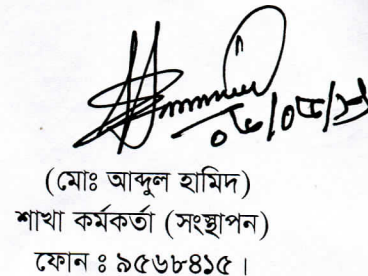 (মোঃ আব্দুল হামিদ)
শাখা কর্মকর্তা (সংস্থাপন)
ফোন ঃ ৯৫৬৮৪১৫।